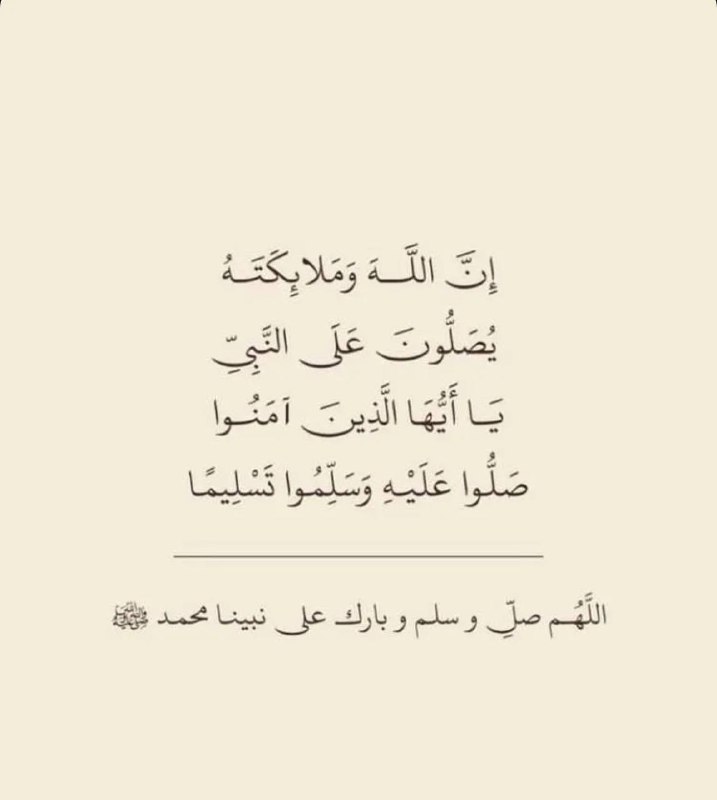 إِنَّ اللَّـهَ وَمَلائِكَتَـهُ
يُصَلُّونَ عَلَى النَّبِيِّ
يَـا أَيُّهَا الَّذِينَ آمَنُـوا
صَلُّوا عَلَيْـهِ وَسَلِّمُوا تَسْلِيمًا
اللَّهُـم صلِّ و سلم و بارك على نبينا محمد ﷺ